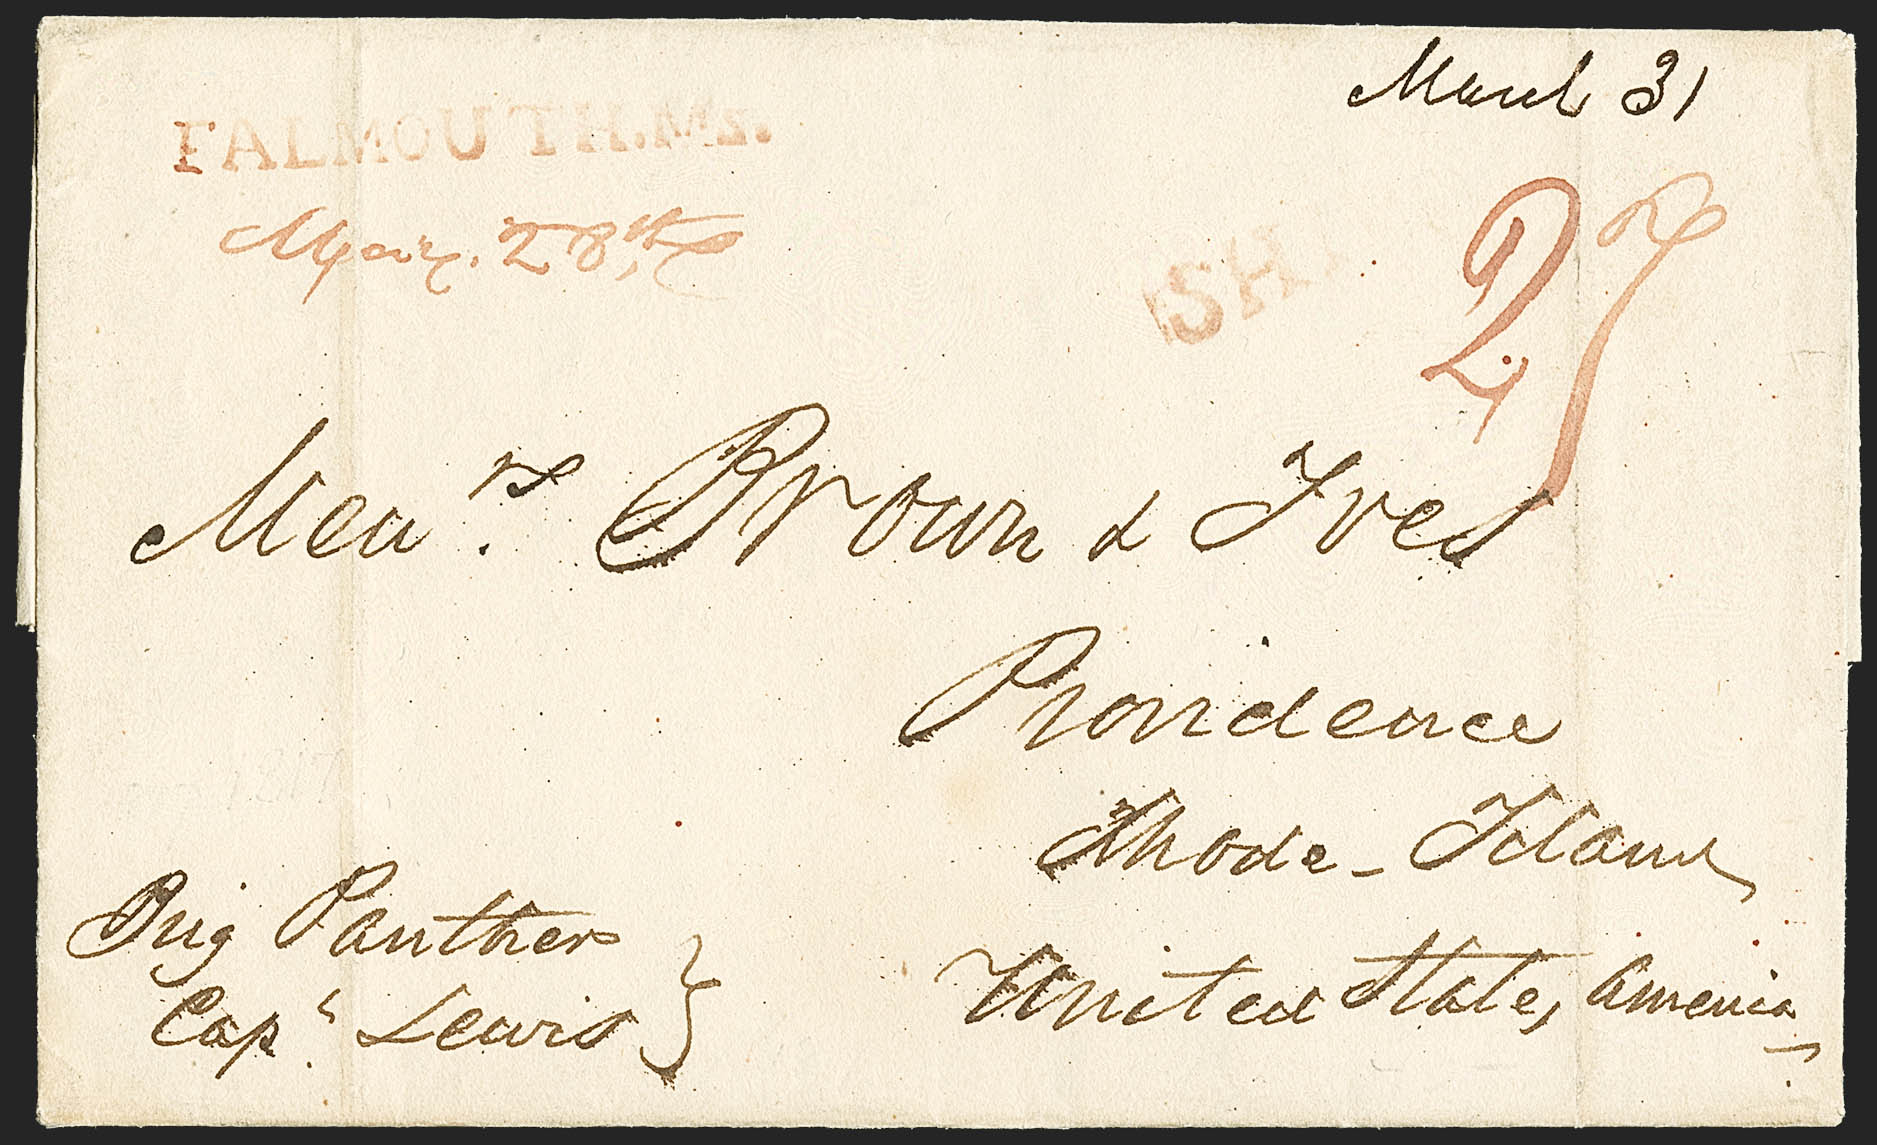 March 31
FALMOUTH.Ms.
May. 28th
SHI
27
Messrs. Brown & Ives
Providence
Rhode-Island
United States, America
Brig Panther
Capt. Lewis